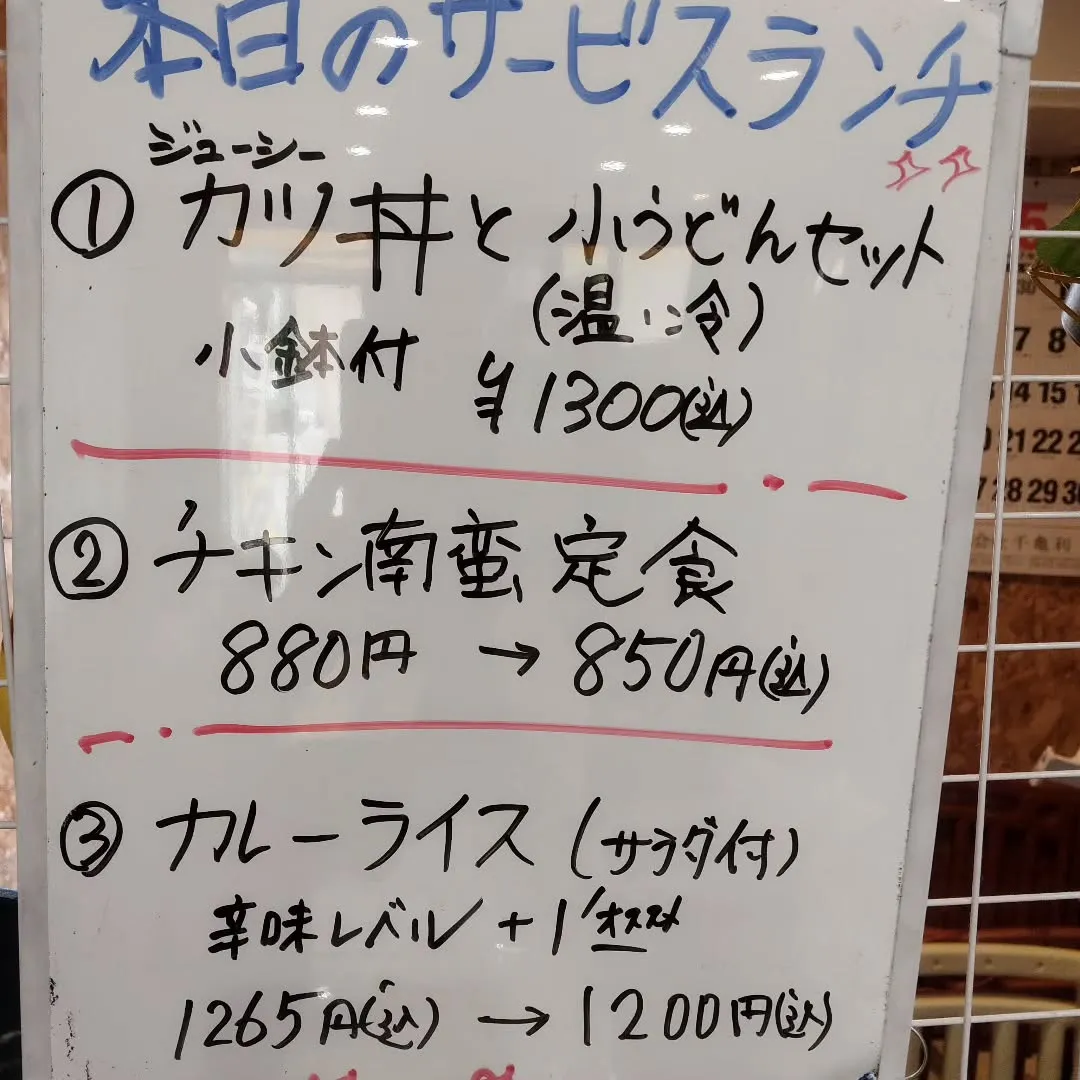 本日のサービスランチ
ジューシー
① カツ丼と小うどんセット
(温い冷)
小鉢付 ¥1300(込)
② チキン南蛮定食
880円 → 850円(込)
③ カレーライス (サラダ付)
辛味レベル +1 オススメ
1265円(込) → 1200円(込)
5
30
7 8
14 15 1
21 22 2
7 28 29 30
千亀利